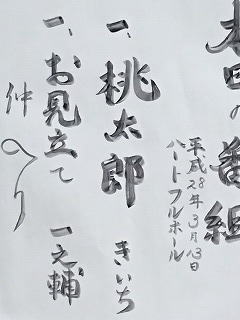 本日の番組
平成28年3月13日
ハートフルホール
一、桃太郎 きいち
一、お見立て 一之輔
仲のり